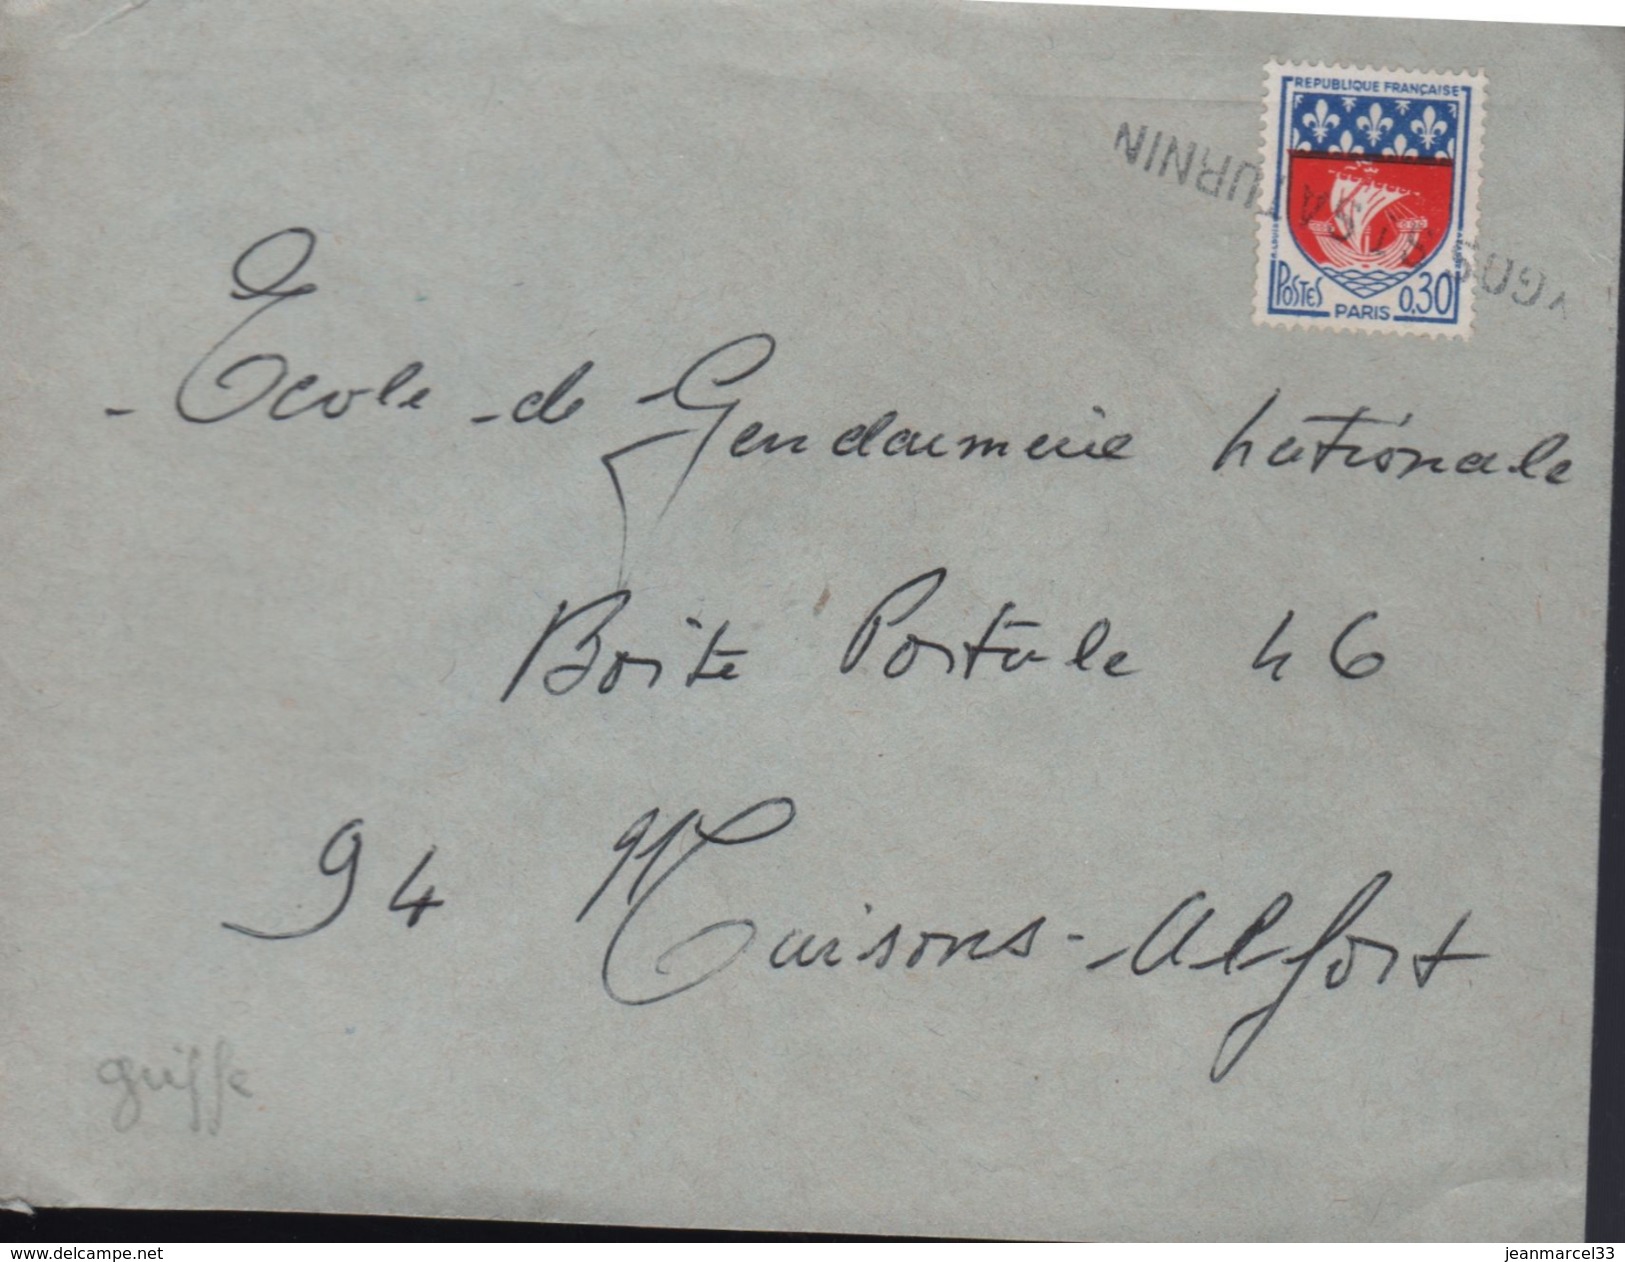 REPUBLIQUE FRANÇAISE
POSTES 0,30
PARIS
- Ecole de Gendarmerie Nationale
Boîte Postale 46
94 Maisons-Alfort
griffe
www.delcampe.net
jeanmarcel33